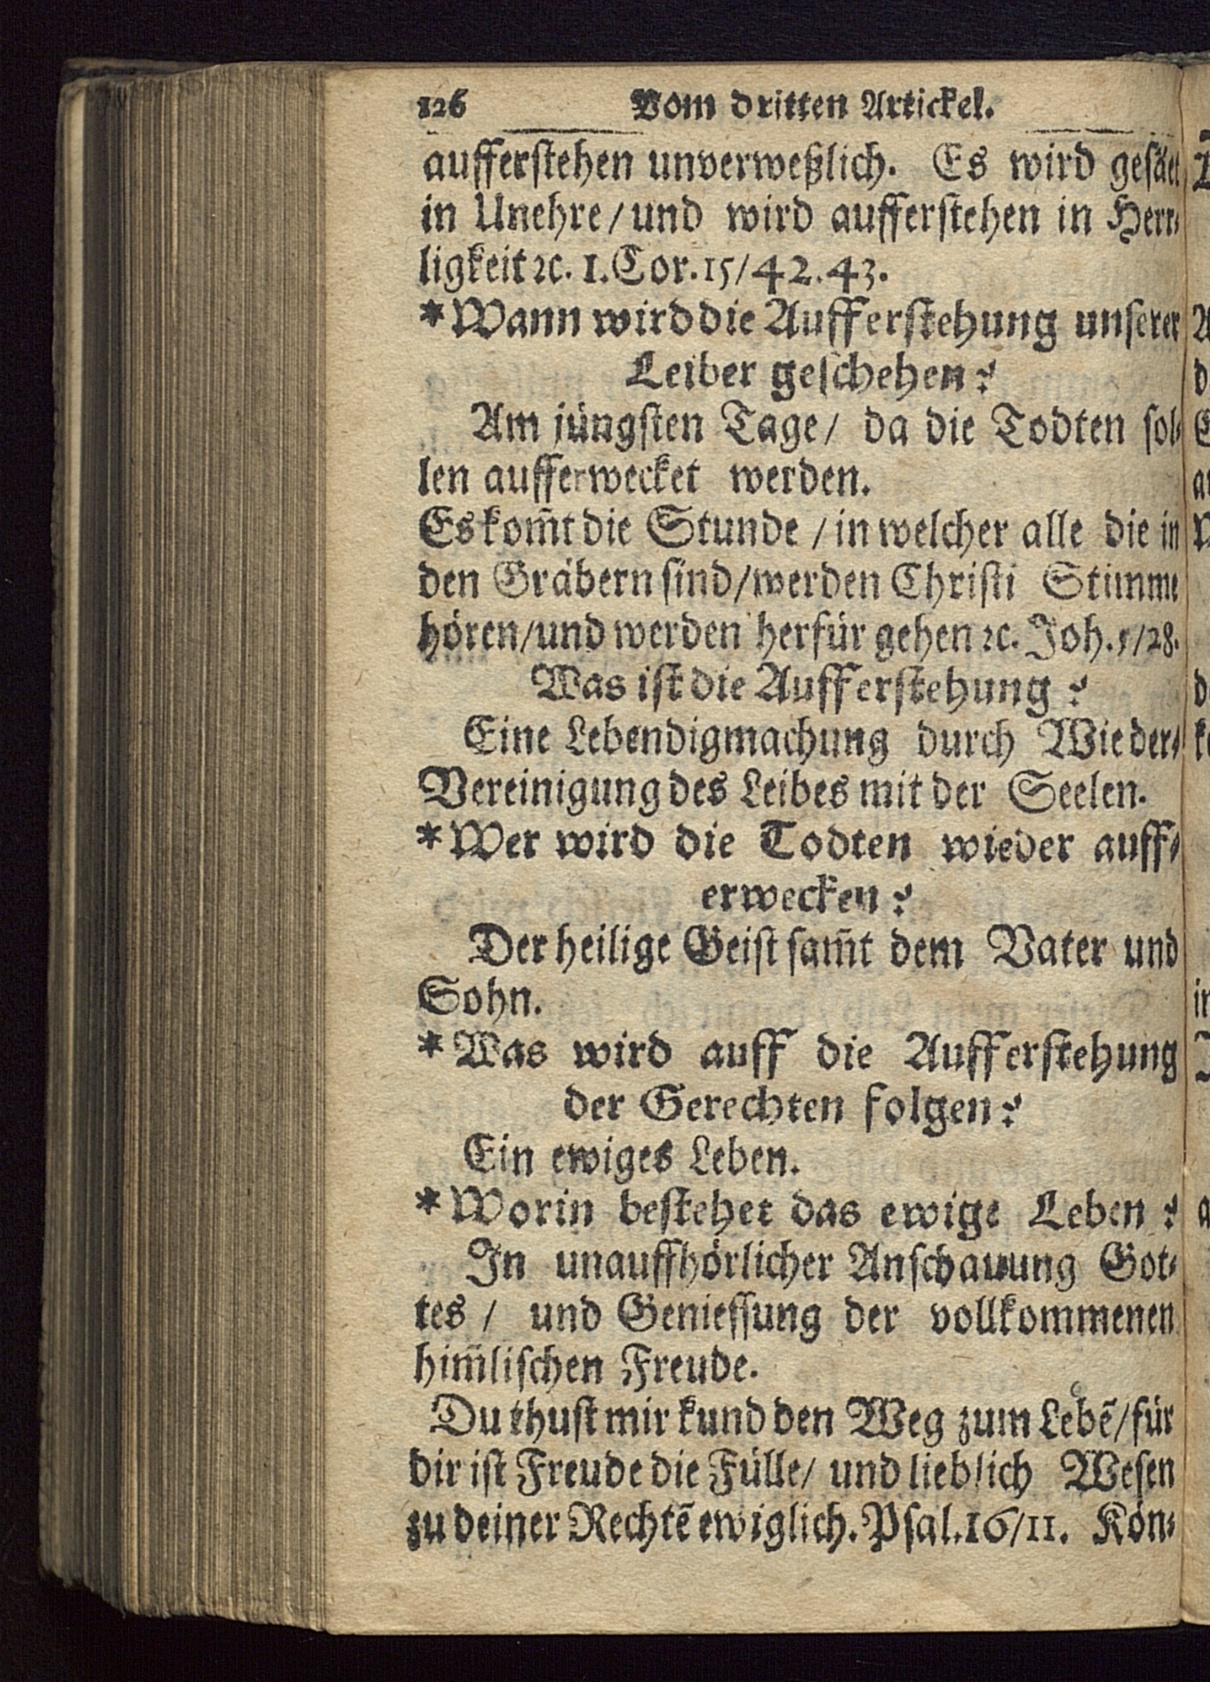 126 Vom dritten Artickel.
aufferstehen unverweßlich. Es wird gesäet
in Unehre / und wird aufferstehen in Herr-
ligkeit ꝛc. 1. Cor. 15/42.43.
* Wann wird die Aufferstehung unserer
Leiber geschehen?
Am jüngsten Tage / da die Todten sol-
len aufferwecket werden.
Es kom̃t die Stunde / in welcher alle die in
den Gräbern sind / werden Christi Stimme
hören / und werden herfür gehen ꝛc. Joh. 5/28.
Was ist die Aufferstehung?
Eine Lebendigmachung durch Wieder-
Vereinigung des Leibes mit der Seelen.
* Wer wird die Todten wieder auff-
erwecken?
Der heilige Geist sam̃t dem Vater und
Sohn.
* Was wird auff die Aufferstehung
der Gerechten folgen?
Ein ewiges Leben.
* Worin bestehet das ewige Leben?
In unauffhörlicher Anschauung Got-
tes / und Geniessung der vollkommenen
him̃lischen Freude.
Du thust mir kund den Weg zum Lebẽ / für
dir ist Freude die Fülle / und lieblich Wesen
zu deiner Rechtẽ ewiglich. Psal. 16/11. Kön-